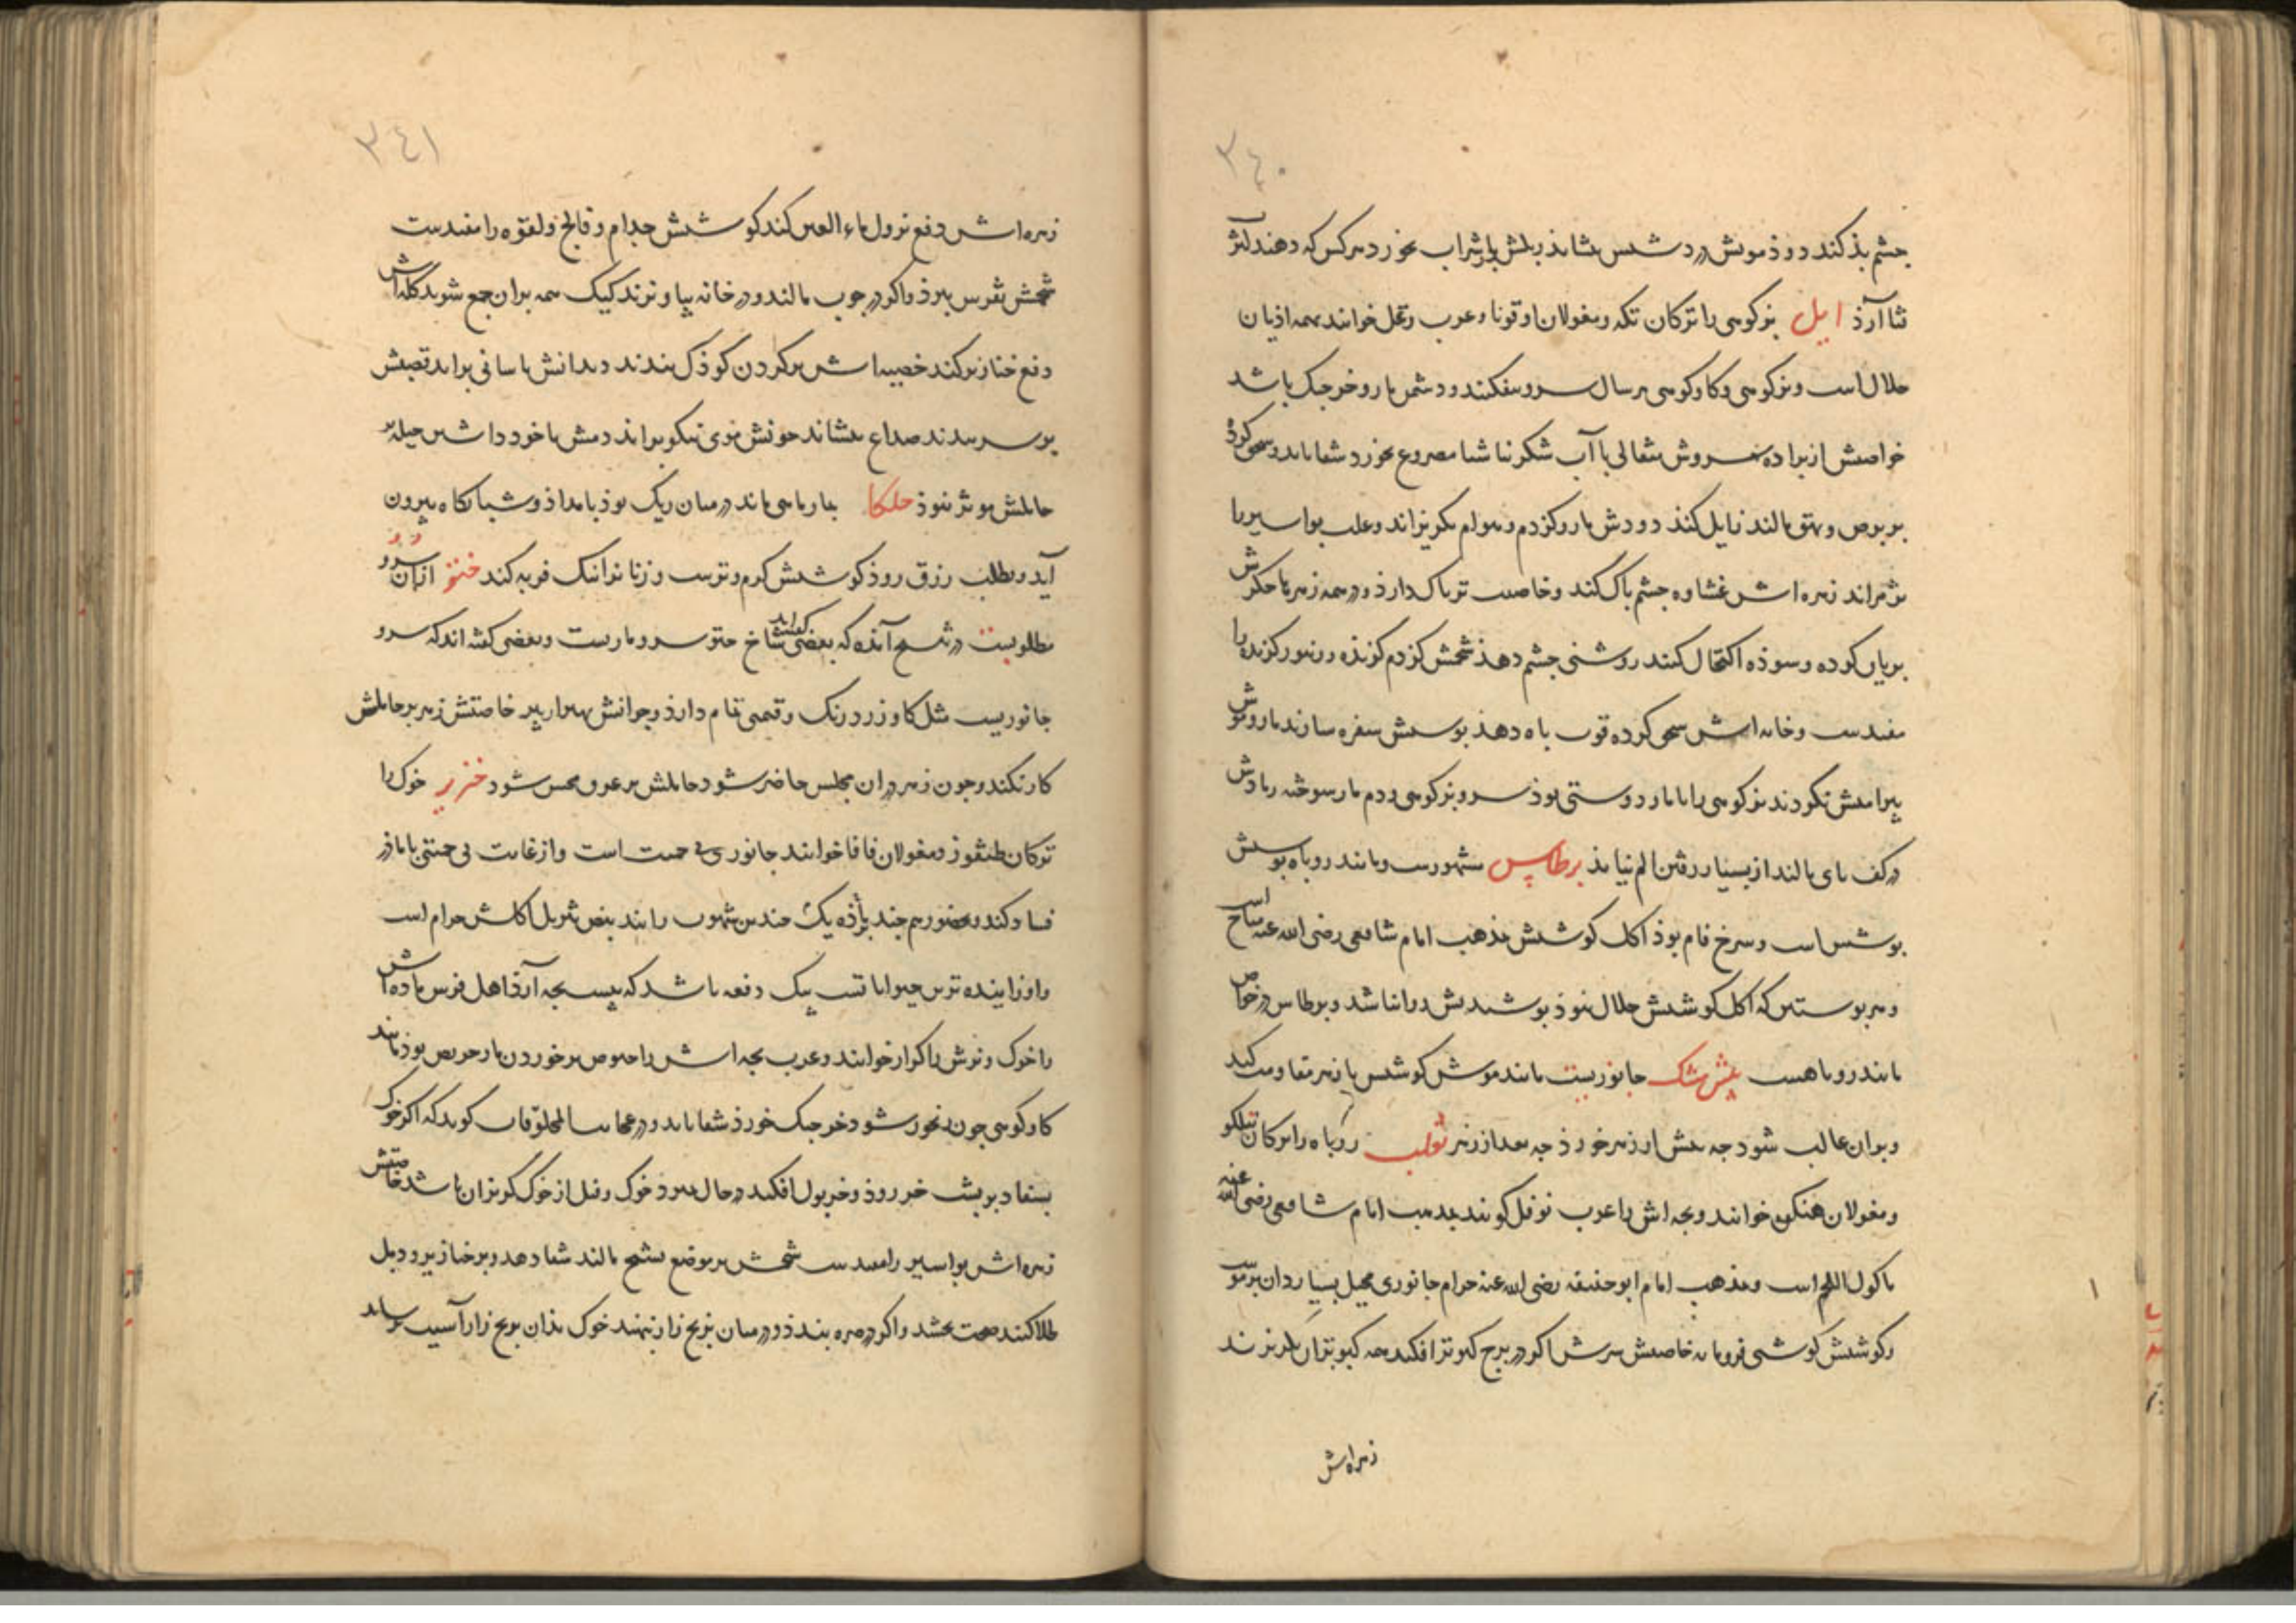 ٣٤٠
چشم بذ کند دوذ مویش درد شش بنشاند زبلش با شراب بخورد هرکس که دهند لثر
ثنا آرذ ایل بزکوهی را ترکان تکه ومغولان اوقونا وعرب وعل خوانند همه اذیان
حلال است وبزکوهی وکاوکوهی هر سال سرو بیفکنند ودشمن مار وخرجنک باشد
خواصش از براده سروش مثقالی با آب شکر ناشتا مصروع بخورد شفا یابد وسحق کرده
بر برص وبهق مالند زایل کند دودش مار وکزدم وهوام بکریزاند وعلت بواسیر را
زهره اش غشاوه چشم پاک کند وخاصیت تریاک دارذ در همه زهرها جکرش
بریان کرده وسوذه اکتحال کنند روشنی چشم دهذ شحمش کزدم کزنده وزنبور کزنده را
مفیدست وخایه اش سحق کرده قوت باه دهذ بوستش سفره سازند مار وموش
پیرامنش نکردند بزکوهی را با مار دوستی بوذ سرو بزکوهی ودم مار سوخته رمادش
در کف پای مالند از بسیار رفتن الم نیابذ برطاس مشهورست ومانند روباه بوستش
بوشش است وسرخ فام بوذ اکل کوشتش بمذهب امام شافعی رضی الله عنه مباح است
وهر بوستین که اکل کوشتش حلال نبوذ بوشیدنش روا نباشد وبرطاس در خواص
مانند روباهست بیش مشک جانوریست مانند موش کوشتش با زهر مقاومت کند
وبران غالب شود جه بیش از زهر خورذ جه بعد از زهر ثعلب روباه را ترکان تلکو
ومغولان هنکن خوانند وبچه اش را عرب نوفل کویند بمذهب امام شافعی رضی الله عنه
ماکول اللحم است وبمذهب امام ابو حنیفه رضی الله عنه حرام جانوری محیل بسیار دان
وکوشتش کوشتی فرومایه خاصیتش سرش اکر در برج کبوتر افکند همه کبوتران بکریزند
زهره اش
٣٤١
زهره اش دفع نزول ماء العین کند کوشتش جذام وفالج ولقوه را مفیدست
شحمش نقرس ببرذ واکر در جوب مالند ودر خانه بپا وزند کیک همه بران جمع شوند کله اش
دفع خنازیر کند خصیه اش بر کردن کوذک بندند دندانش باسانی براید قصبش
بر سر بندند صداع بنشاند خونش موی نیکو براند دمش با خود داشتن حیله بر
حاملش موثر نبوذ حلکا بمارماهی ماند در میان ریک بوذ بامداذ وشبانکاه بیرون
آید وبطلب رزق روذ کوشتش کرم وترست وزنانرا نیک فربه کند ختو ازان سرو
مطلوبست در نسخ آمذه که بعضی کفته اند شاخ ختو سرو مارست وبعضی کفته اند که سرو
جانوریست مثل کاو زرد رنک وقیمتی تمام دارذ وجوانش بهتر از پیر خاصیتش زهر بر حاملش
کار نکند وجون زهر در ان مجلس حاضر شود حاملش بر عرق محس شود خنزیر خوک را
ترکان طنقوز ومغولان قاقا خوانند جانوری بی حمیت است واز غایت بی حمیتی با ماذر
فساد کند وبحضور هم چند نر با ماذه یک جندین شهوت رانند بنص تنزیل اکلش حرام است
واو زاینده ترین حیواناتست بیک دفعه باشد که بیست بچه آرذ اهل فرس ماده اش
را خوک ونرش را کراز خوانند وعرب بچه اش را خنوص بر خوردن مار حریص بوذ مانند
کاوکوهی جون رنجور شود خرجنک خورذ شفا یابد ودر عجایب المخلوقات کوید که اکر خوک
بیفتاد بر پشت خر روذ وخر بول افکند در حال بمیرذ خوک وفیل از خوک کریزان باشد خاصیتش
زهره اش بواسیر را مفیدست شحمش بر موضع تشنج مالند شفا دهد وبر خنازیر ودمل
طلا کنند صحت بخشد واکر در صره بندذ ودر میان برنج زار نهند خوک بذان برنج زار آسیب نرساند